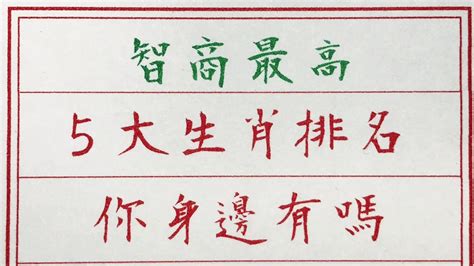 智商最高
5大生肖排名
你身邊有嗎